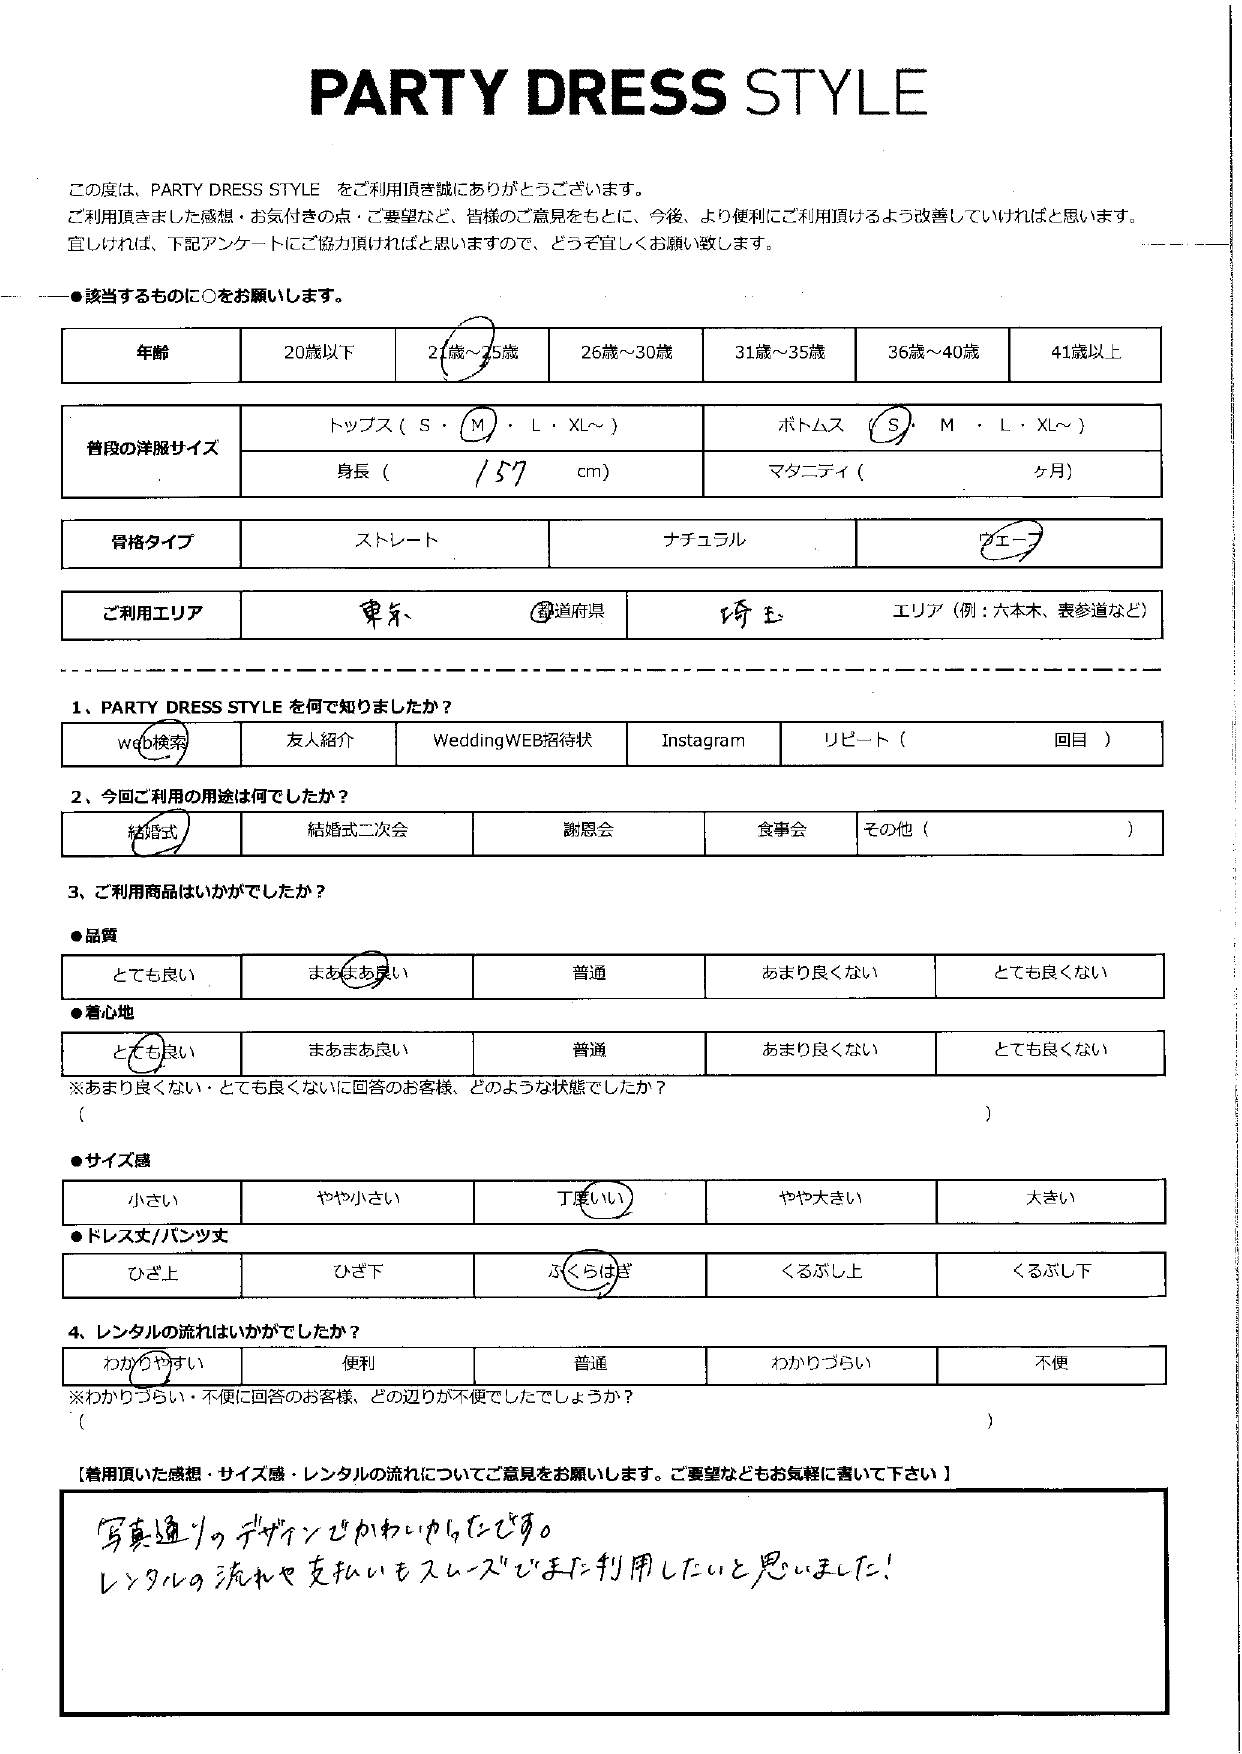 PARTY DRESS STYLE
この度は、PARTY DRESS STYLE　をご利用頂き誠にありがとうございます。
ご利用頂きました感想・お気付きの点・ご要望など、皆様のご意見をもとに、今後、より便利にご利用頂けるよう改善していければと思います。
宜しければ、下記アンケートにご協力頂ければと思いますので、どうぞ宜しくお願い致します。
●該当するものに○をお願いします。
年齢 20歳以下 21歳～25歳 26歳～30歳 31歳～35歳 36歳～40歳 41歳以上
普段の洋服サイズ トップス ( S ・ M ・ L ・ XL～ ) ボトムス ( S ・ M ・ L ・ XL～ )
身長 ( 157 cm) マタニティ ( ヶ月)
骨格タイプ ストレート ナチュラル ウェーブ
ご利用エリア 東京 都道府県 埼玉 エリア（例：六本木、表参道など）
1、PARTY DRESS STYLE を何で知りましたか？
web検索 友人紹介 WeddingWEB招待状 Instagram リピート ( 回目 )
2、今回ご利用の用途は何でしたか？
結婚式 結婚式二次会 謝恩会 食事会 その他 ( )
3、ご利用商品はいかがでしたか？
●品質
とても良い まあまあ良い 普通 あまり良くない とても良くない
●着心地
とても良い まあまあ良い 普通 あまり良くない とても良くない
※あまり良くない・とても良くないに回答のお客様、どのような状態でしたか？
( )
●サイズ感
小さい やや小さい 丁度いい やや大きい 大きい
●ドレス丈/パンツ丈
ひざ上 ひざ下 ふくらはぎ くるぶし上 くるぶし下
4、レンタルの流れはいかがでしたか？
わかりやすい 便利 普通 わかりづらい 不便
※わかりづらい・不便に回答のお客様、どの辺りが不便でしたでしょうか？
( )
【着用頂いた感想・サイズ感・レンタルの流れについてご意見をお願いします。ご要望などもお気軽に書いて下さい】
写真通りのデザインでかわいかったです。
レンタルの流れや支払いもスムーズでまた利用したいと思いました!